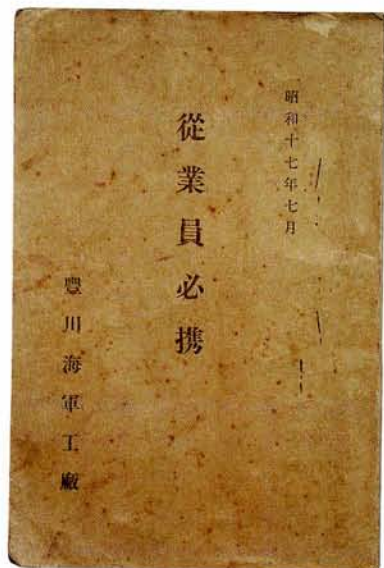 昭和十七年七月
從業員必携
豐川海軍工廠